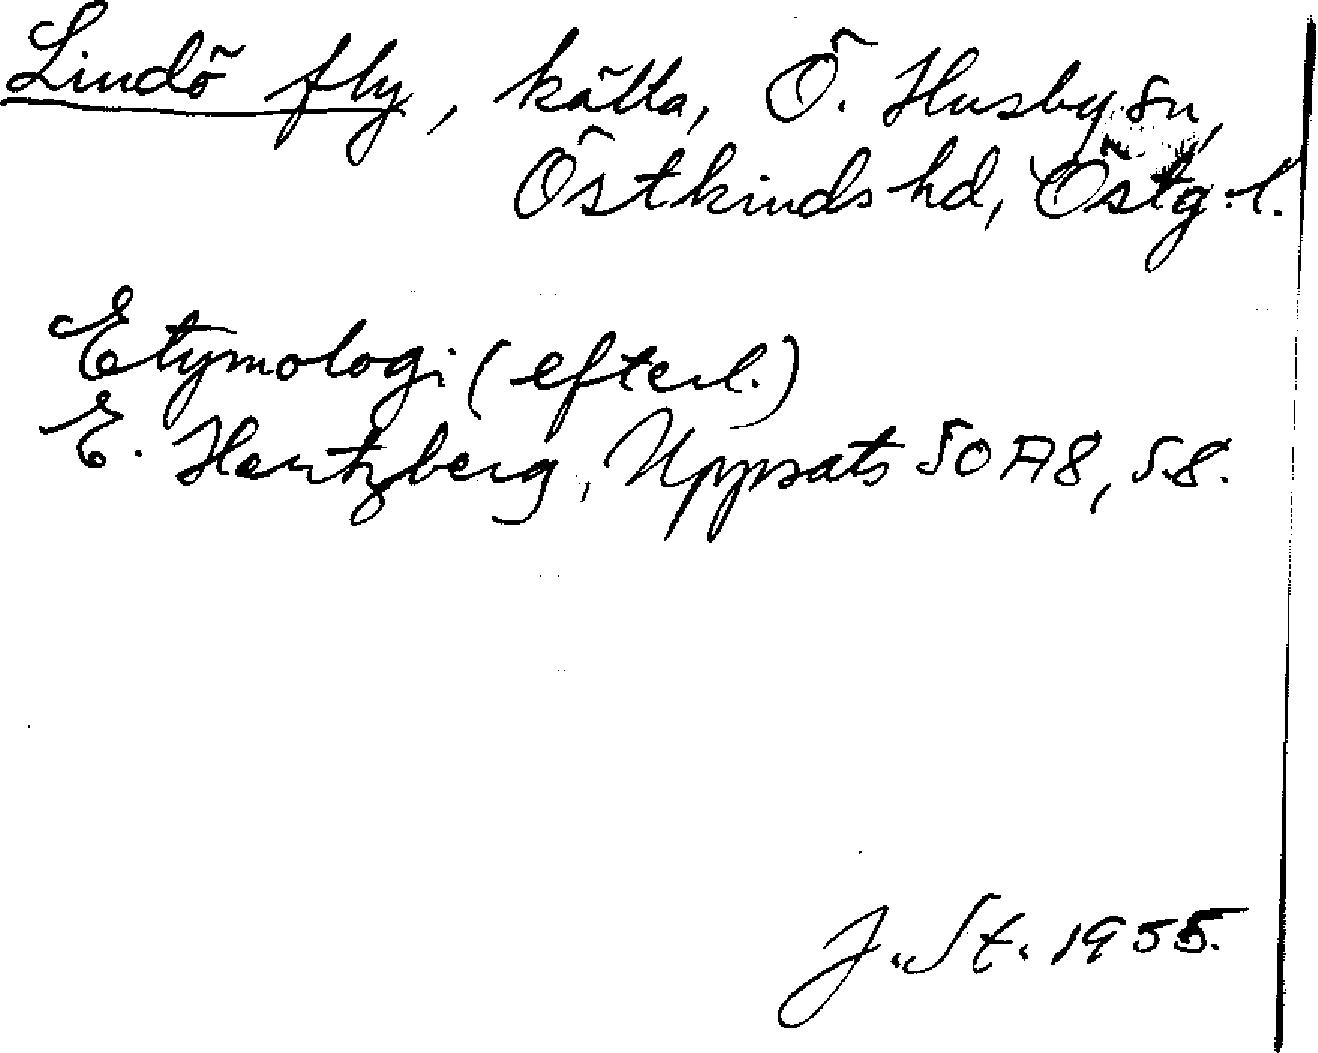 Lindö fly, källa, Ö. Husby sn,
Östkinds hd, Östg.l.
Etymologi (efterl.)
E. Hentzberg, Uppsats SOA8, s.8.
J. St. 1955.